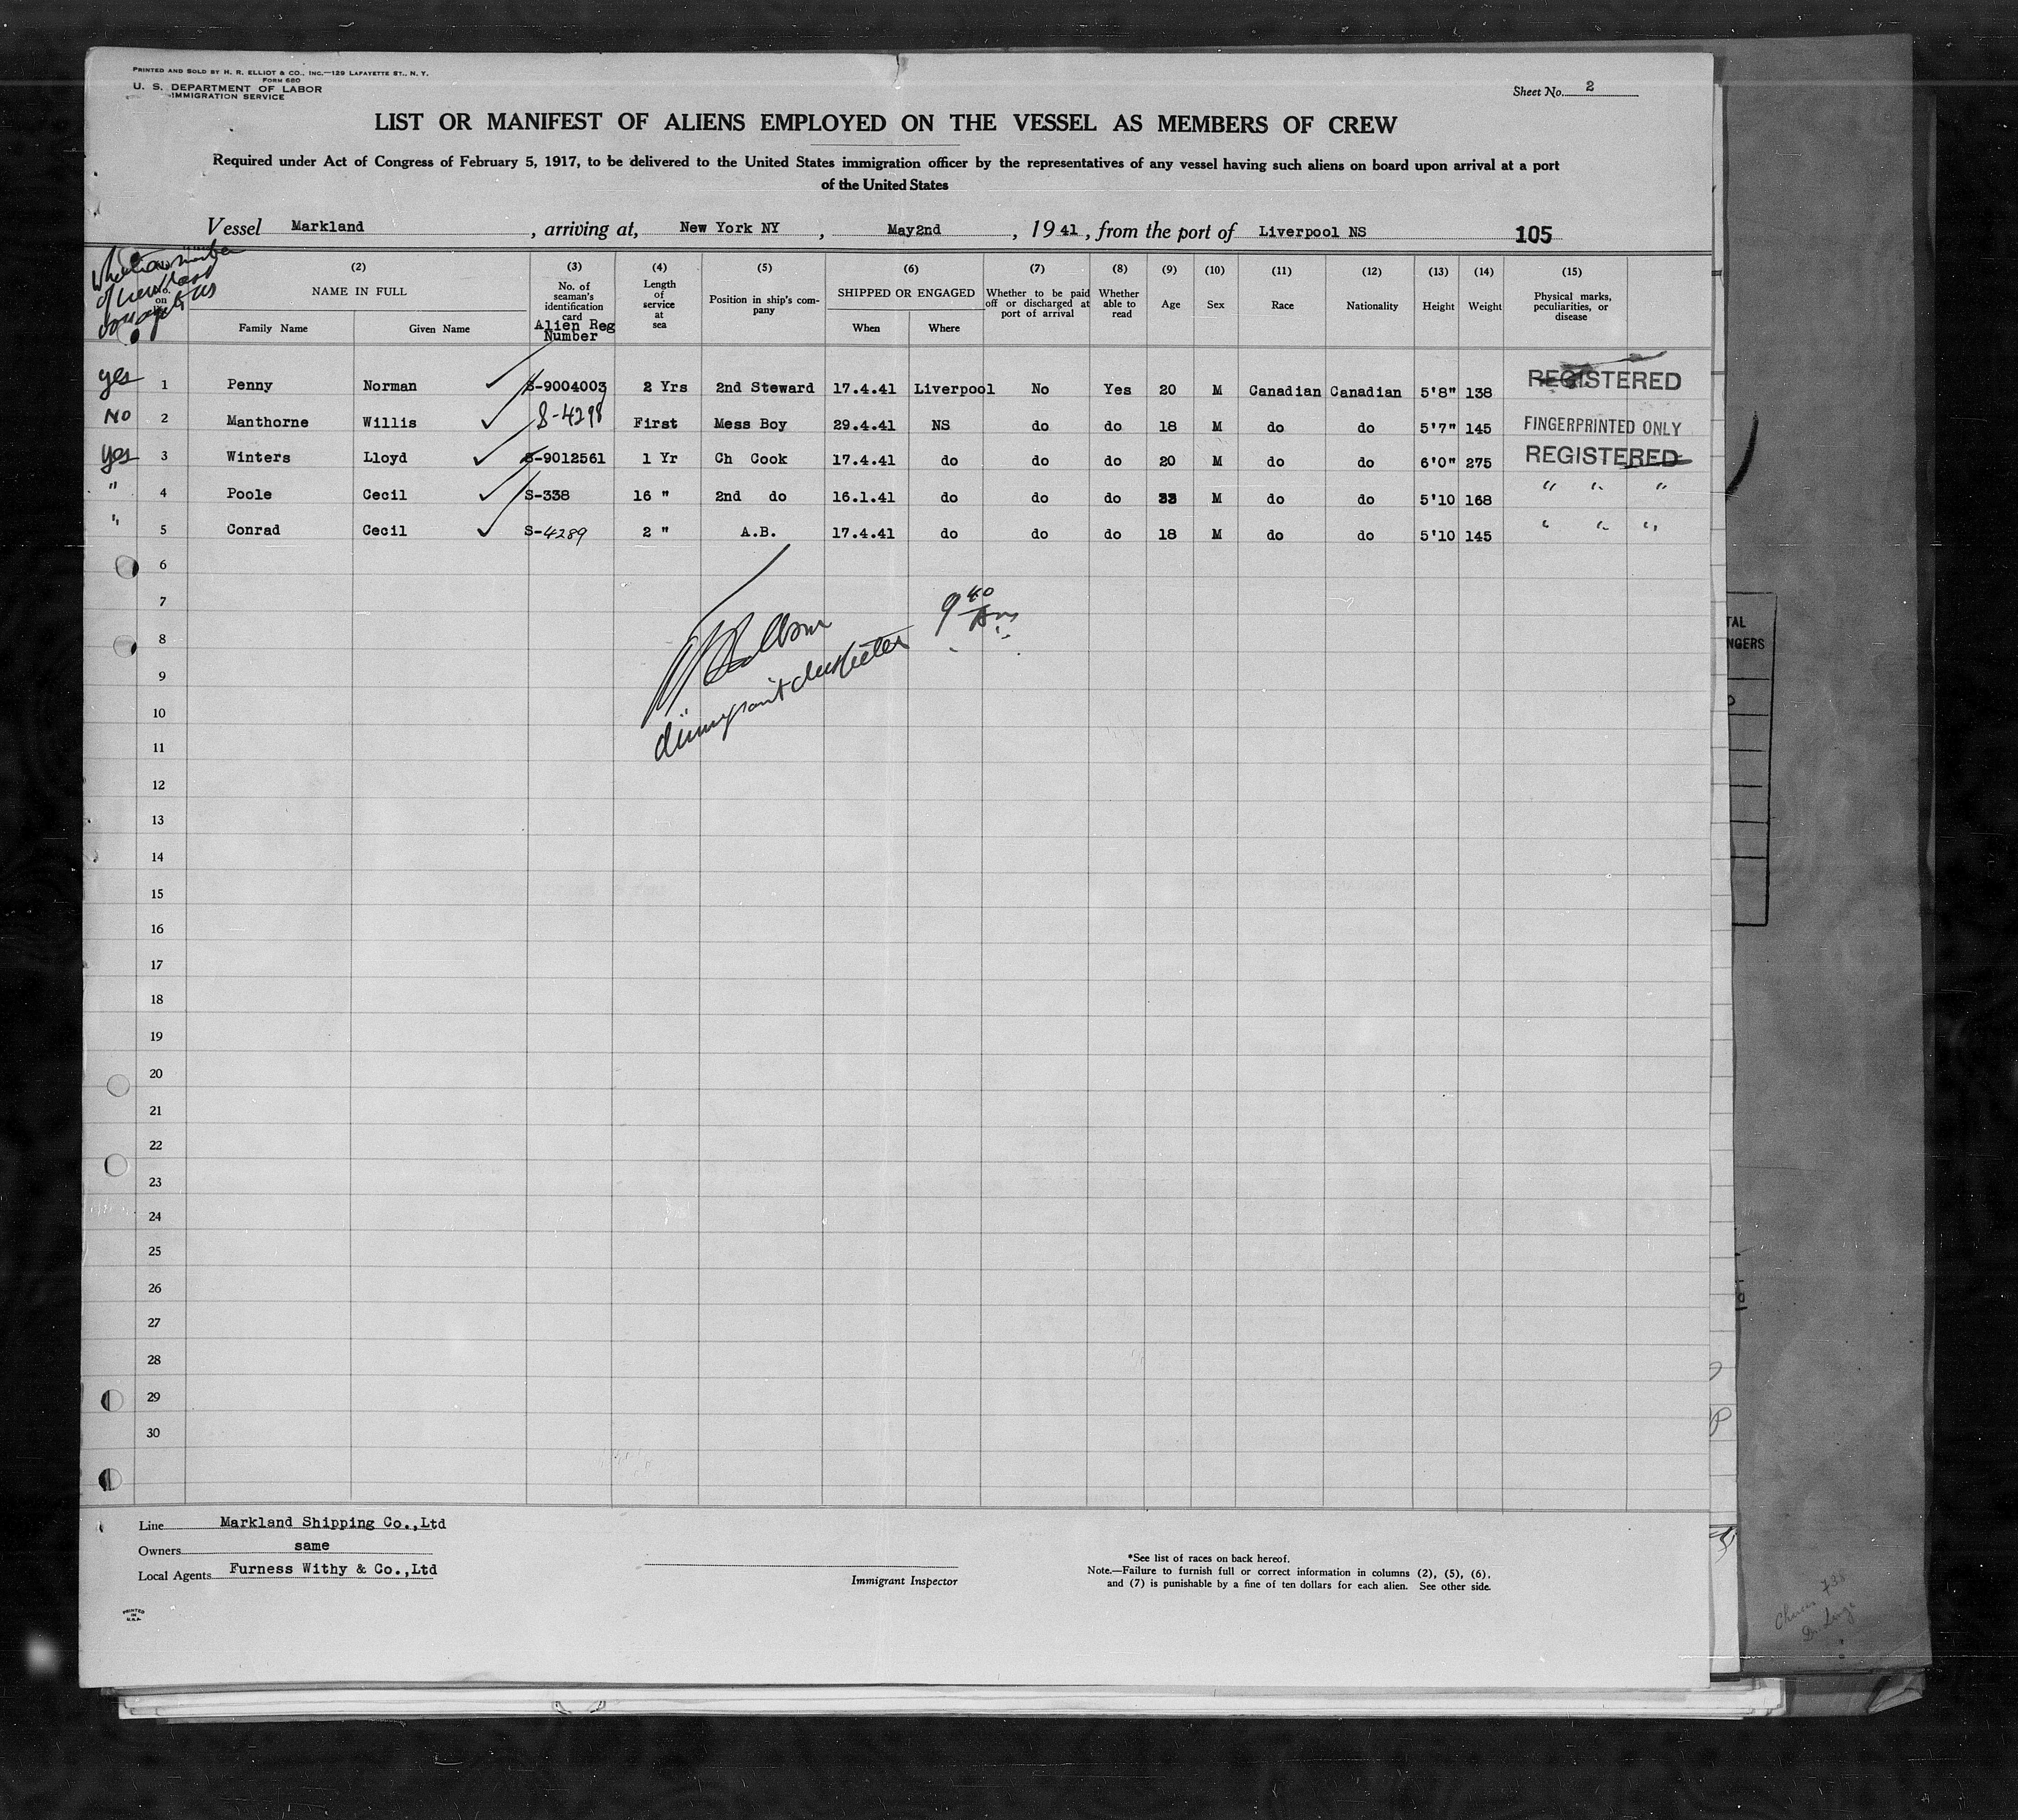 PRINTED AND SOLD BY H. R. ELLIOT & CO., INC.—129 LAFAYETTE ST., N. Y.
FORM 680
U. S. DEPARTMENT OF LABOR
IMMIGRATION SERVICE
Sheet No. 2
LIST OR MANIFEST OF ALIENS EMPLOYED ON THE VESSEL AS MEMBERS OF CREW
Required under Act of Congress of February 5, 1917, to be delivered to the United States immigration officer by the representatives of any vessel having such aliens on board upon arrival at a port
of the United States
Vessel Markland, arriving at, New York NY, May2nd, 1941, from the port of Liverpool NS 105
(2) (3) (4) (5) (6) (7) (8) (9) (10) (11) (12) (13) (14) (15)
NAME IN FULL
Family Name Given Name
No. of seaman's identification card
Alien Reg Number
Length of service at sea
Position in ship's company
SHIPPED OR ENGAGED
When Where
Whether to be paid off or discharged at port of arrival
Whether able to read
Age Sex Race Nationality Height Weight
Physical marks, peculiarities, or disease
yes 1 Penny Norman S-9004003 2 Yrs 2nd Steward 17.4.41 Liverpool No Yes 20 M Canadian Canadian 5'8" 138 REGISTERED
No 2 Manthorne Willis S-4298 First Mess Boy 29.4.41 NS do do 18 M do do 5'7" 145 FINGERPRINTED ONLY
yes 3 Winters Lloyd S-9012561 1 Yr Ch Cook 17.4.41 do do do 20 M do do 6'0" 275 REGISTERED
" 4 Poole Cecil S-338 16 " 2nd do 16.1.41 do do do 33 M do do 5'10 168 " " "
" 5 Conrad Cecil S-4289 2 " A.B. 17.4.41 do do do 18 M do do 5'10 145 " " "
6
7
9 40
8
9
10
11
12
13
14
15
16
17
18
19
20
21
22
23
24
25
26
27
28
29
30
Line Markland Shipping Co.,Ltd
Owners same
Local Agents Furness Withy & Co.,Ltd
Immigrant Inspector
*See list of races on back hereof.
Note.—Failure to furnish full or correct information in columns (2), (5), (6),
and (7) is punishable by a fine of ten dollars for each alien. See other side.
PRINTED
IN
U.S.A.
TAL
NGERS